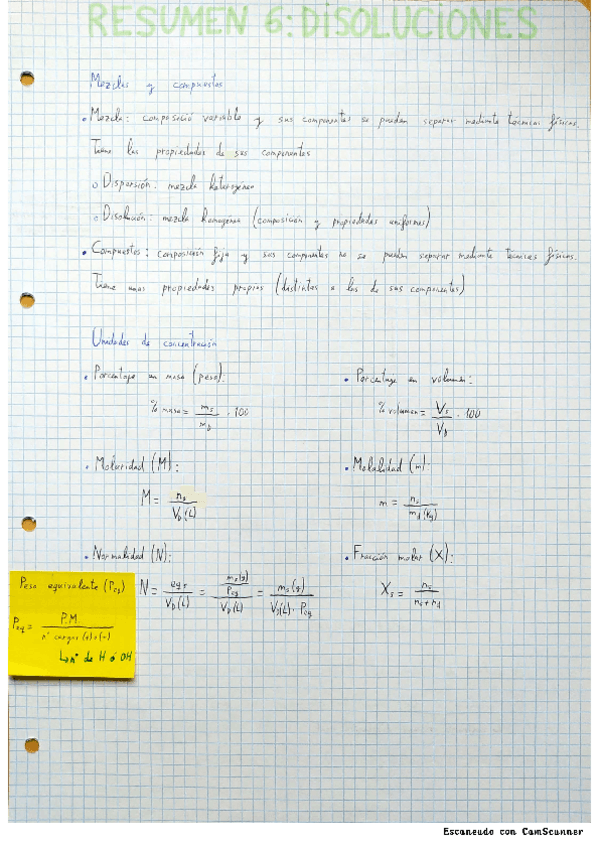 RESUMEN 6: DISOLUCIONES
Mezclas y compuestos
• Mezcla: composició variable y sus componentes se pueden separar mediante técnicas físicas.
Tiene las propiedades de sus componentes
o Dispersión: mezcla heterogénea
o Disolución: mezcla homogénea (composición y propiedades uniformes)
• Compuestos: composición fija y sus componentes no se pueden separar mediante técnicas físicas.
Tiene unas propiedades propias (distintas a las de sus componentes)
Unidades de concentración
• Porcentaje en masa (peso):
% masa = m_s / m_D · 100
• Porcentaje en volumen:
% volumen = V_s / V_D · 100
• Molaridad (M):
M = n_s / V_D(L)
• Molalidad (m):
m = n_s / m_d(kg)
• Normalidad (N):
N = eq_s / V_D(L) = (m_s(g) / P_eq) / V_D(L) = m_s(g) / V_D(L) · P_eq
• Fracción molar (X):
X_s = n_s / n_s + n_d
Peso equivalente (P_eq)
P_eq = P.M. / nº cargas (+) o (-)
↳ nº de H ó OH
Escaneado con CamScanner